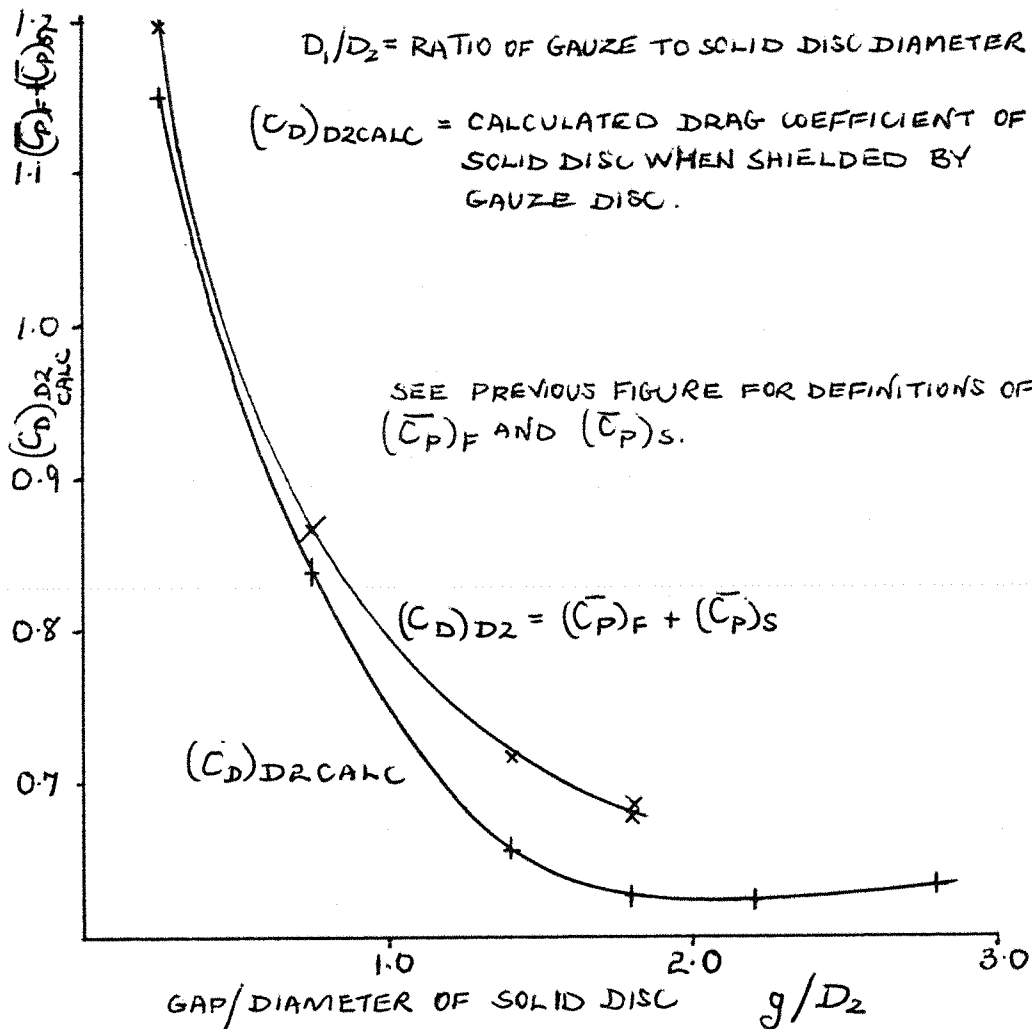 1.2
D₁/D₂ = RATIO OF GAUZE TO SOLID DISC DIAMETER
(C_D)D2CALC = CALCULATED DRAG COEFFICIENT OF
SOLID DISC WHEN SHIELDED BY
GAUZE DISC.
1.1
1.0
(C_D)D2 CALC
SEE PREVIOUS FIGURE FOR DEFINITIONS OF
(C̅_P)F AND (C̅_P)S.
0.9
0.8
(C_D)D2 = (C̅_P)F + (C̅_P)S
(C_D)D2CALC
0.7
1.0
2.0
3.0
GAP/DIAMETER OF SOLID DISC g/D₂